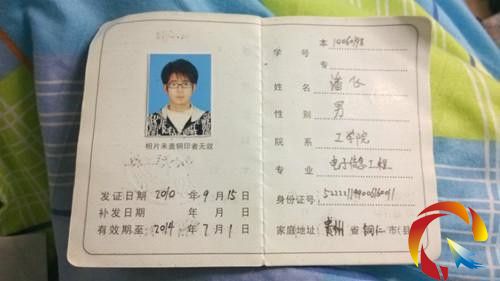 相片未盖钢印者无效
发证日期 2010 年 9 月 15 日
补发日期 年 月 日
有效期至 2014 年 7 月 1 日
本
学号
专
姓名 潘
性别 男
院系 工学院
专业 电子信息工程
身份证号:
家庭地址: 贵州 省 铜仁 市(县